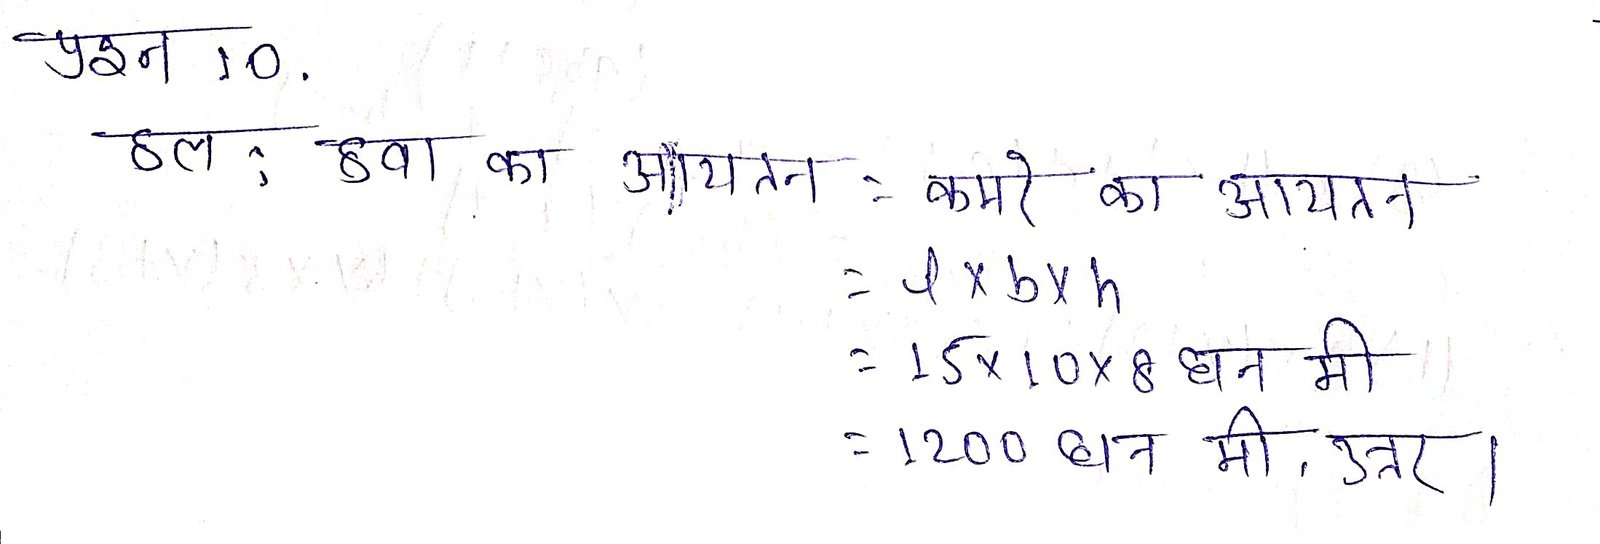 प्रश्न 10.
हल : हवा का आयतन = कमरे का आयतन
= l × b × h
= 15 × 10 × 8 घन मी
= 1200 घन मी. उत्तर।